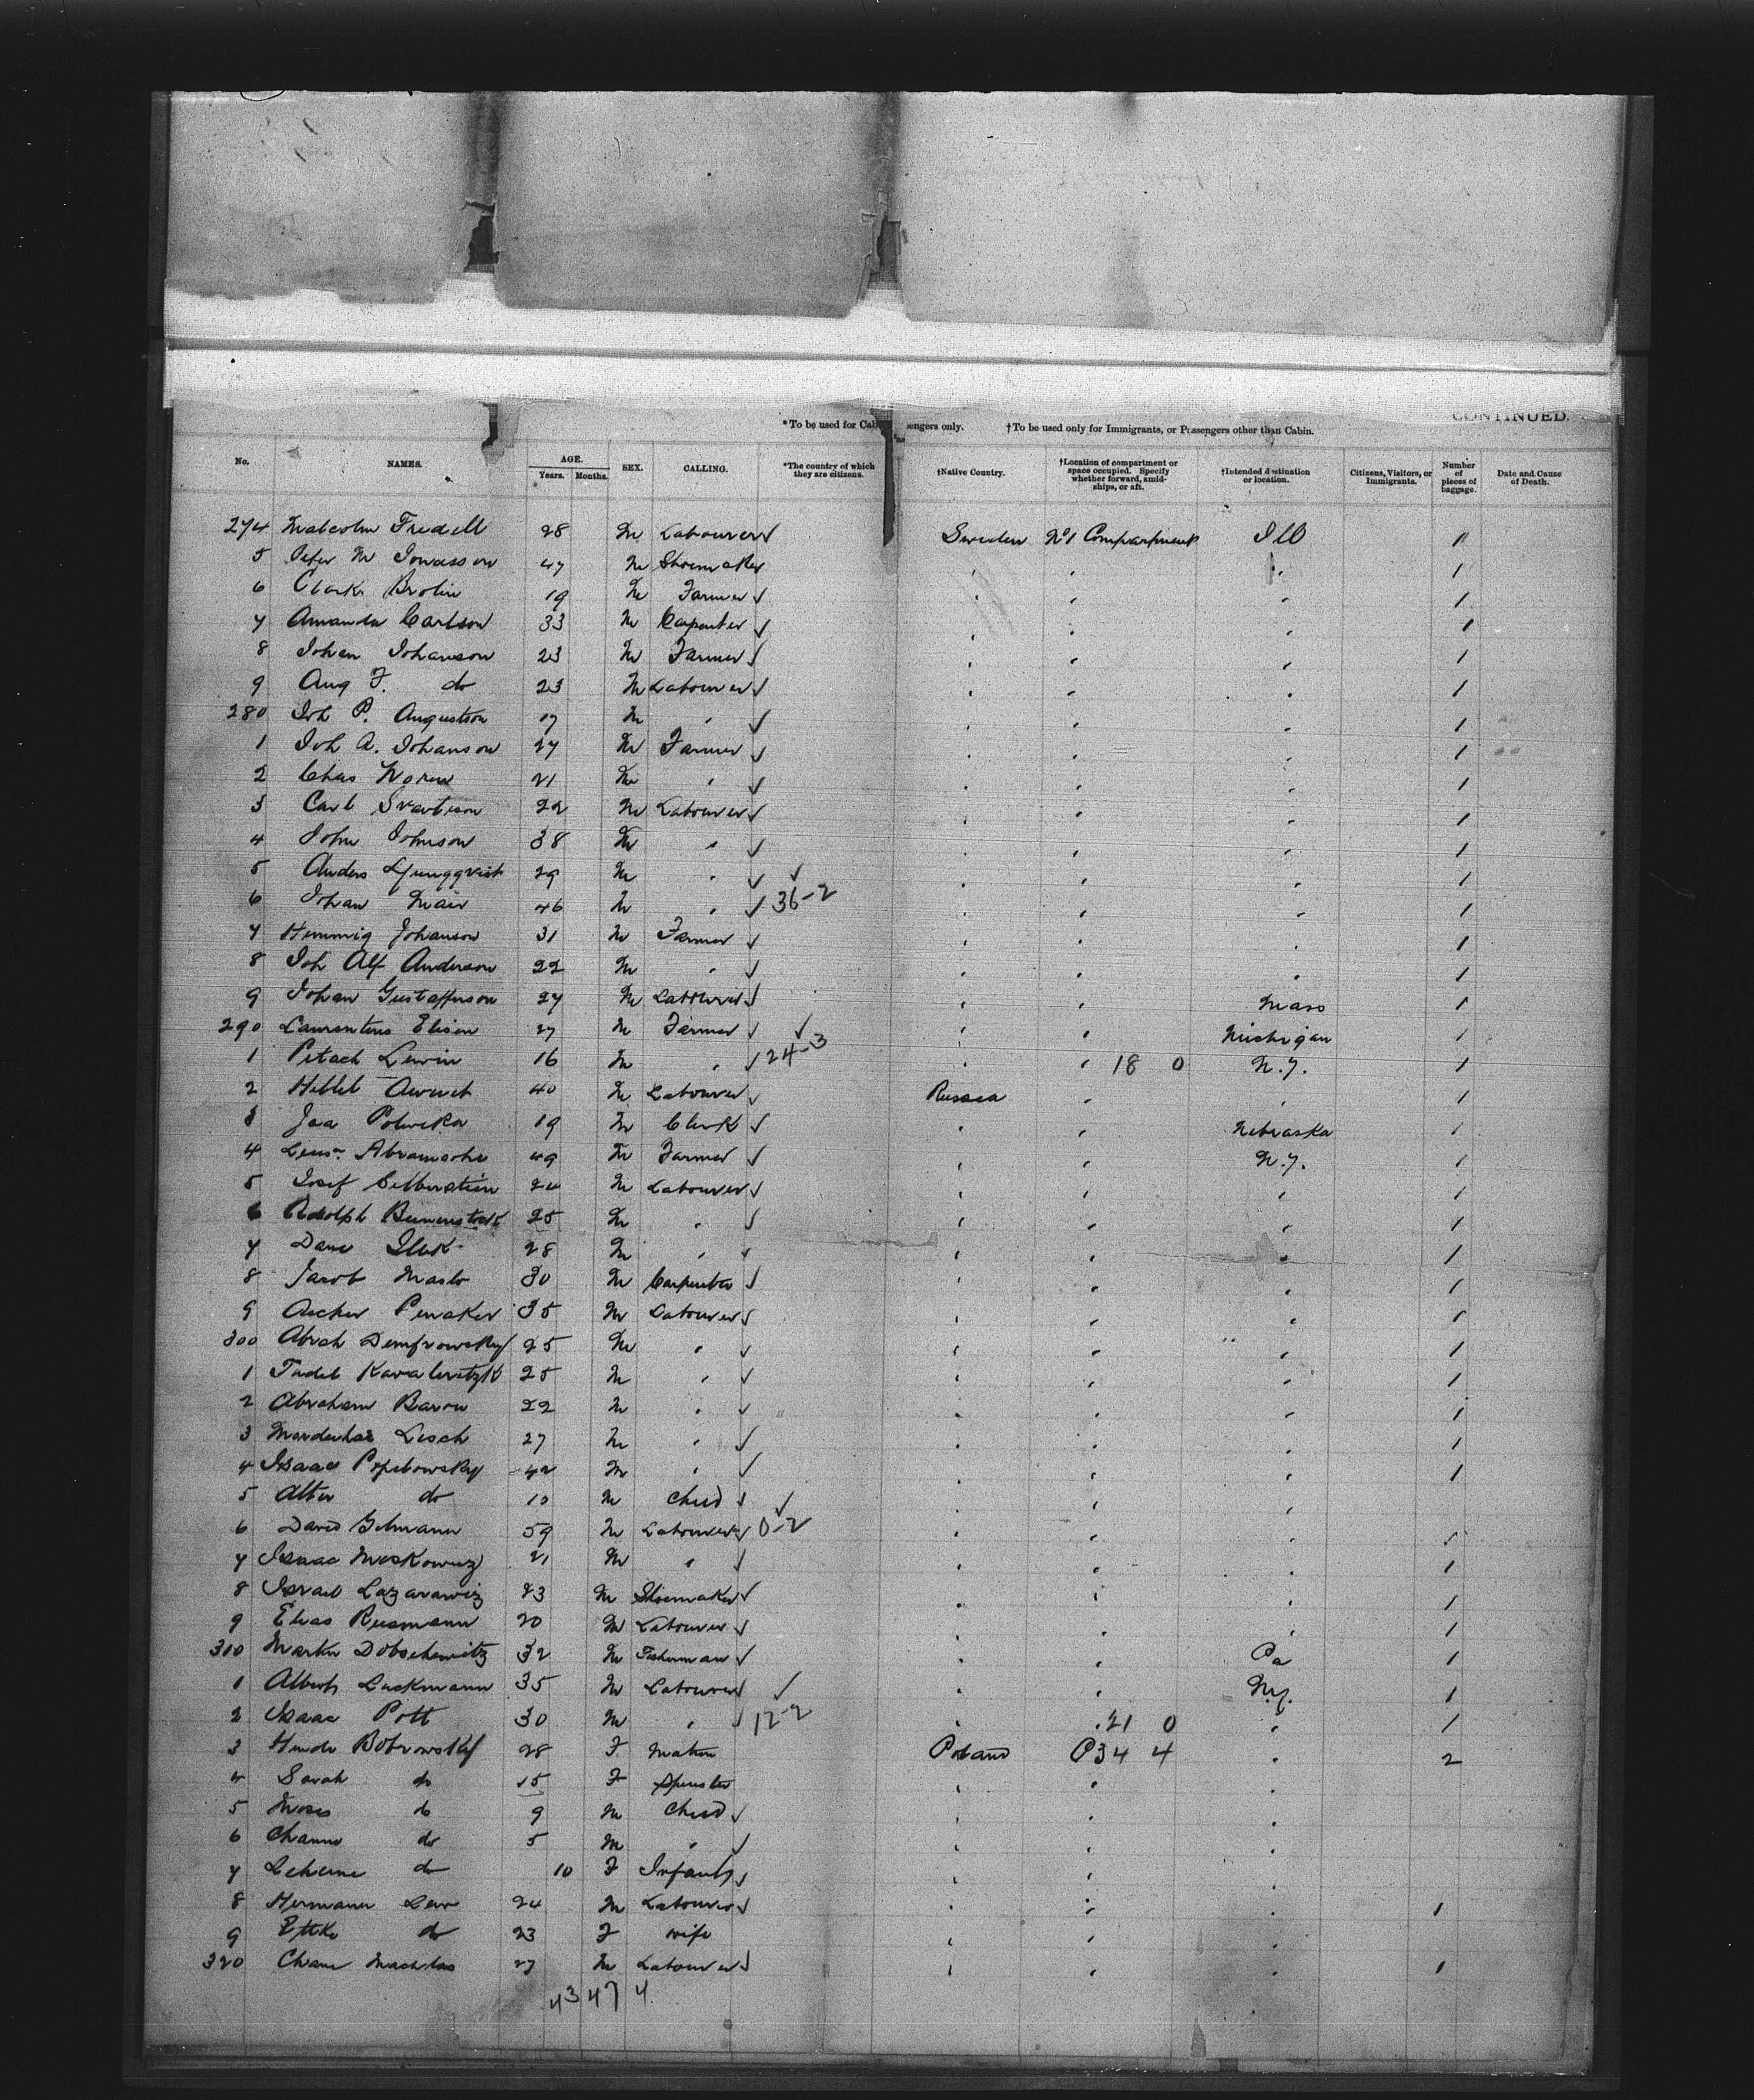 CONTINUED.
*To be used for Cab engers only. †To be used only for Immigrants, or Passengers other than Cabin.
No. NAMES. AGE. Years. Months. SEX. CALLING. *The country of which they are citizens. †Native Country. †Location of compartment or space occupied. Specify whether forward, amidships, or aft. †Intended destination or location. Citizens, Visitors, or Immigrants. Number of pieces of baggage. Date and Cause of Death.
274 Malcolm Fredell 28 M Labourer Sweden No 1 Compartment Ill 1
5 Peter M 47 M Shoemaker " " " 1
6 Brolin 19 M Farmer " " " 1
7 Amanda Carlson 33 M Carpenter " " " 1
8 Johan Johanson 23 M Farmer " " " 1
9 Aug F. do 23 M Labourer " " " 1
280 Joh P. Augustson 17 M " " " " 1
1 Joh A. Johanson 27 M Farmer " " " 1
2 Chas Noren 21 M " " " " 1
3 Carl 22 M Labourer " " " 1
4 John Johnson 38 M " " " " 1
5 Anders Ljungqvist 29 M " " " " 1
6 Johan 46 M " 36-2 " " " 1
7 Hemmig Johanson 31 M Farmer " " " 1
8 Joh Alf Anderson 22 M " " " " 1
9 Johan Gustafferson 27 M Labourer " " Mass 1
290 Laurentius Elison 27 M Farmer " " Michigan 1
1 Petach Lewin 16 M " 24-3 " " 18 0 N.Y. 1
2 40 M Labourer Russia " " 1
3 19 M Clerk " " Nebraska 1
4 49 M Farmer " " N.Y. 1
5 Josef Silberstein 24 M Labourer " " " 1
6 Adolph 25 M " " " " 1
7 28 M " " " " 1
8 Jacob Maslo 30 M Carpenter " " " 1
9 Ascher 35 M Labourer " " " 1
300 Abrah 25 M " " " " 1
1 25 M " " " " 1
2 Abraham Baron 22 M " " " " 1
3 Lesch 27 M " " " " 1
4 Isaac 42 M " " " " 1
5 Alter do 10 M Child " " "
6 David 59 M Labourer 0-2 " " " 1
7 Isaac Moskowicz 21 M " " " " 1
8 Israel Lazarawiz 23 M Shoemaker " " " 1
9 Elias 20 M Labourer " " " 1
310 32 M Fisherman " " Pa 1
1 Albert Lackmann 35 M Labourer " " N.Y. 1
2 Isaac Pott 30 M " 12-2 " " 21 0 " 1
3 Bobrowsky 28 F. Matron Poland P34 4 " 2
4 Sarah do 15 F Spinster " " "
5 Moses do 9 M Child " " "
6 do 5 M " " " "
7 do 10 F Infant " " "
8 Hermann 24 M Labourer " " " 1
9 do 23 F wife " " "
320 27 M Labourer " " " 1
43 47 4